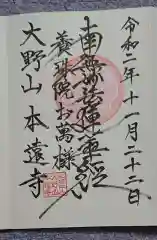 令和二年十一月二十二日
南無妙法蓮華経
養珠院お萬様
大野山 本遠寺